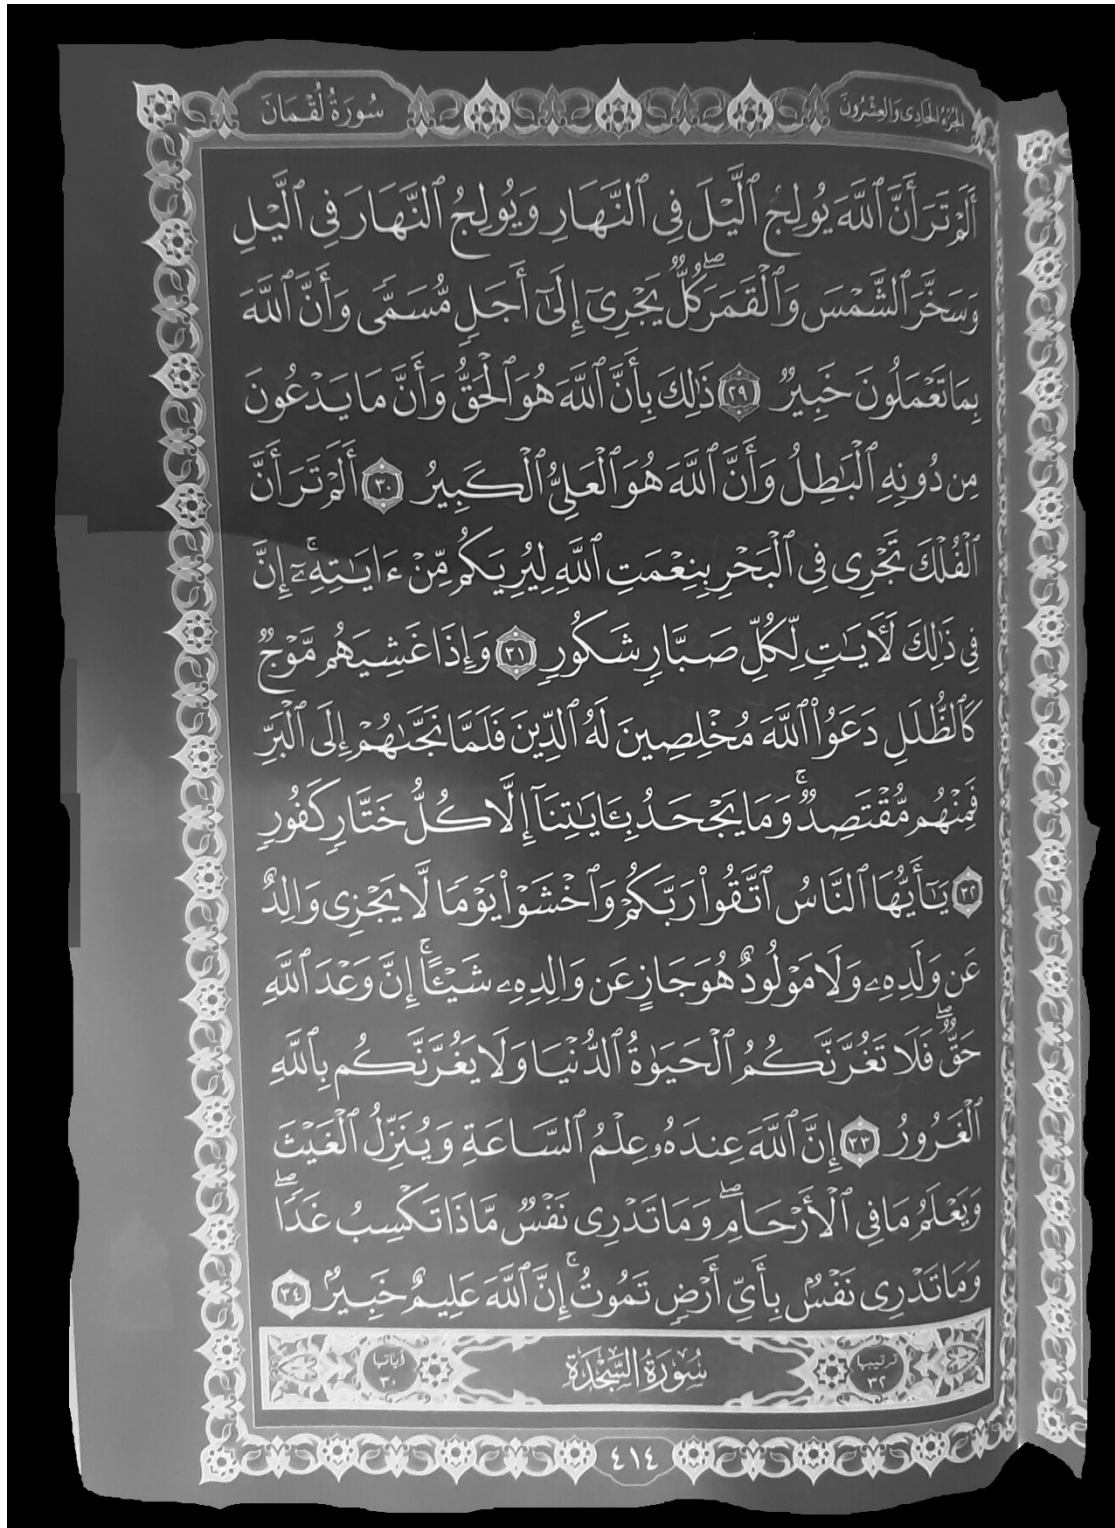 الجُزْءُ الحَادِى وَالعِشْرُونَ
سُورَةُ لُقْمَانَ
أَلَمْ تَرَ أَنَّ ٱللَّهَ يُولِجُ ٱلَّيْلَ فِى ٱلنَّهَارِ وَيُولِجُ ٱلنَّهَارَ فِى ٱلَّيْلِ
وَسَخَّرَ ٱلشَّمْسَ وَٱلْقَمَرَۖ كُلٌّ يَجْرِىٓ إِلَىٰٓ أَجَلٍ مُّسَمًّى وَأَنَّ ٱللَّهَ
بِمَا تَعْمَلُونَ خَبِيرٌ ٢٩ ذَٰلِكَ بِأَنَّ ٱللَّهَ هُوَ ٱلْحَقُّ وَأَنَّ مَا يَدْعُونَ
مِن دُونِهِ ٱلْبَٰطِلُ وَأَنَّ ٱللَّهَ هُوَ ٱلْعَلِىُّ ٱلْكَبِيرُ ٣٠ أَلَمْ تَرَ أَنَّ
ٱلْفُلْكَ تَجْرِى فِى ٱلْبَحْرِ بِنِعْمَتِ ٱللَّهِ لِيُرِيَكُم مِّنْ ءَايَٰتِهِۦٓۚ إِنَّ
فِى ذَٰلِكَ لَءَايَٰتٍ لِّكُلِّ صَبَّارٍ شَكُورٍ ٣١ وَإِذَا غَشِيَهُم مَّوْجٌ
كَٱلظُّلَلِ دَعَوُا۟ ٱللَّهَ مُخْلِصِينَ لَهُ ٱلدِّينَ فَلَمَّا نَجَّىٰهُمْ إِلَى ٱلْبَرِّ
فَمِنْهُم مُّقْتَصِدٌۚ وَمَا يَجْحَدُ بِـَٔايَٰتِنَآ إِلَّا كُلُّ خَتَّارٍ كَفُورٍ
٣٢ يَٰٓأَيُّهَا ٱلنَّاسُ ٱتَّقُوا۟ رَبَّكُمْ وَٱخْشَوْا۟ يَوْمًا لَّا يَجْزِى وَالِدٌ
عَن وَلَدِهِۦ وَلَا مَوْلُودٌ هُوَ جَازٍ عَن وَالِدِهِۦ شَيْـًٔاۚ إِنَّ وَعْدَ ٱللَّهِ
حَقٌّۖ فَلَا تَغُرَّنَّكُمُ ٱلْحَيَوٰةُ ٱلدُّنْيَا وَلَا يَغُرَّنَّكُم بِٱللَّهِ
ٱلْغَرُورُ ٣٣ إِنَّ ٱللَّهَ عِندَهُۥ عِلْمُ ٱلسَّاعَةِ وَيُنَزِّلُ ٱلْغَيْثَ
وَيَعْلَمُ مَا فِى ٱلْأَرْحَامِۖ وَمَا تَدْرِى نَفْسٌ مَّاذَا تَكْسِبُ غَدًاۖ
وَمَا تَدْرِى نَفْسٌۢ بِأَىِّ أَرْضٍ تَمُوتُۚ إِنَّ ٱللَّهَ عَلِيمٌ خَبِيرٌۢ ٣٤
ترتيبها ٣٢ سُورَةُ السَّجْدَةِ آياتها ٣٠
٤١٤